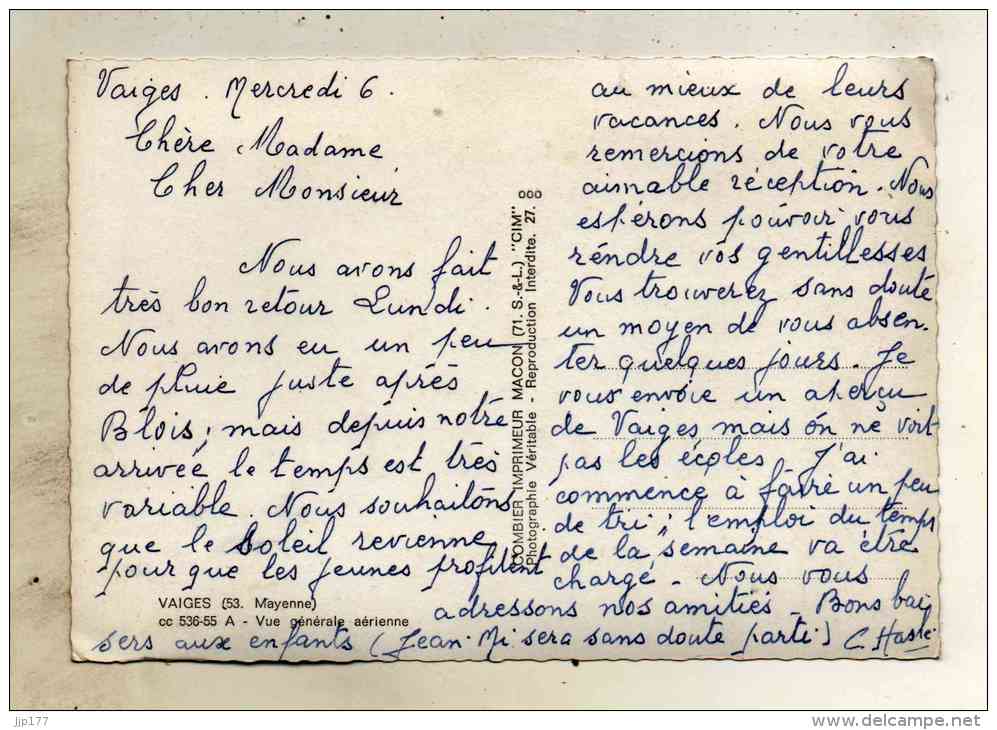 Vaiges. Mercredi 6.
Chère Madame
Cher Monsieur
Nous avons fait
très bon retour Lundi.
Nous avons eu un peu
de pluie juste après
Blois, mais depuis notre
arrivée le temps est très
variable. Nous souhaitons
que le Soleil revienne
pour que les jeunes profitent
au mieux de leurs
vacances. Nous vous
remercions de votre
aimable réception. Nous
espérons pouvoir vous
rendre vos gentillesses
Vous trouverez sans doute
un moyen de vous absen-
ter quelques jours. Je
vous envoie un aperçu
de Vaiges mais on ne voit
pas les écoles. J'ai
commencé à faire un peu
de tri, l'emploi du temps
de la semaine va être
chargé - Nous vous
adressons nos amitiés - Bons bai
sers aux enfants (Jean-Mi sera sans doute parti)
COMBIER IMPRIMEUR MACON (71. S.-&-L.) "CIM"
Photographie Véritable - Reproduction Interdite. 27.
VAIGES (53. Mayenne)
cc 536-55 A - Vue générale aérienne
jjp177
www.delcampe.net